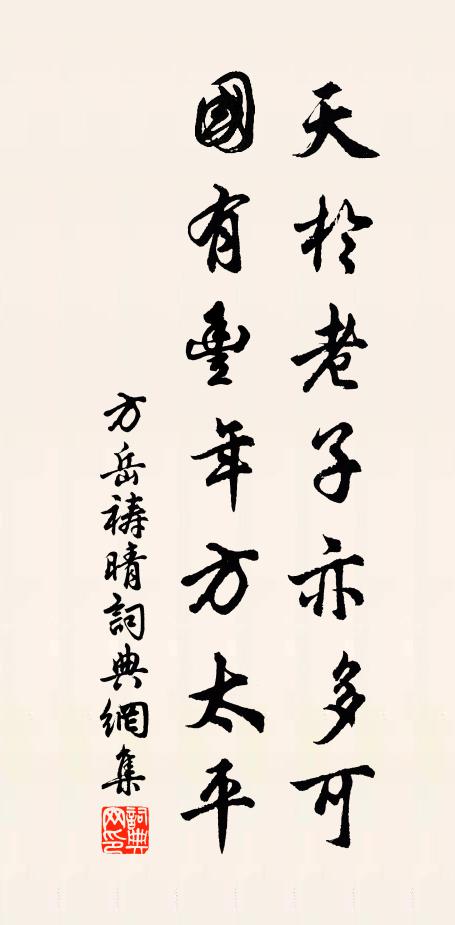 天於老子亦多可
國有豐年方太平
方岳禱晴詞典網集
詞典網印